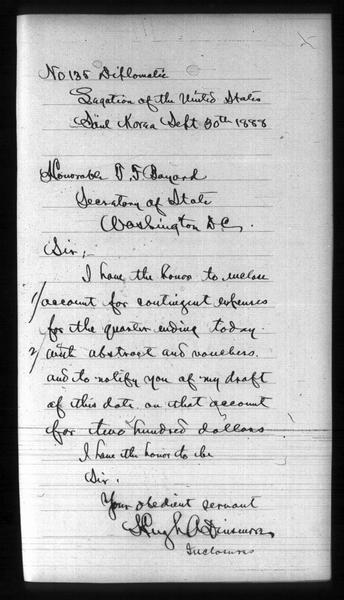 No 138 Diplomatic
Legation of the United States
Söul Korea Sept 30th 1888
Honorable T. F. Bayard
Secretary of State
Washington D.C.
Sir,
I have the honor to inclose
1/ account for contingent expenses
for the quarter ending today
2/ with abstract and vouchers.
and to notify you of my draft
of this date on that account
for two hundred dollars
I have the honor to be
Sir.
Your obedient servant
Hugh A Dinsmore
Inclosures